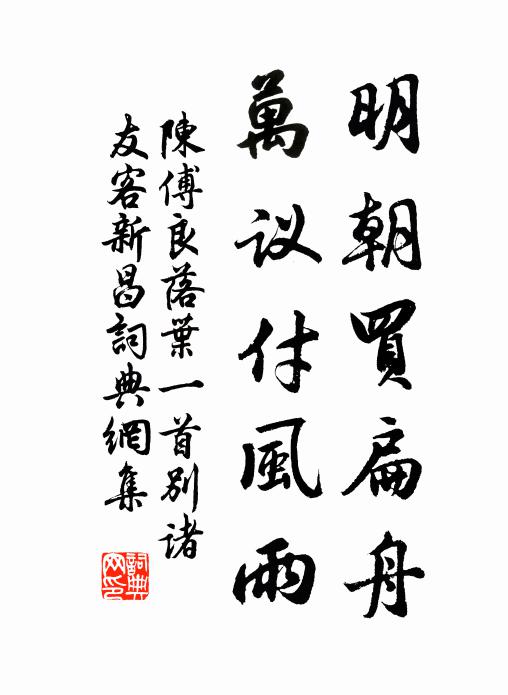 明朝買扁舟
萬议付風雨
陳傅良落葉一首別諸
友客新昌詞典網集
詞典网印